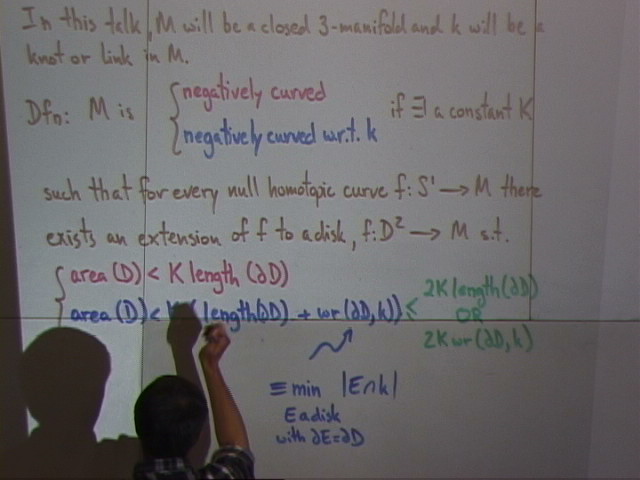 In this talk, M will be a closed 3-manifold and k will be a
knot or link in M.
Dfn: M is { negatively curved
negatively curved w.r.t. k
if ∃ a constant K
such that for every null homotopic curve f: S¹ → M there
exists an extension of f to a disk, f: D² → M s.t.
{ area (D) < K length (∂D)
area (D) < K (length(∂D) + wr (∂D, k)) ≤
2K length(∂D)
OR
2K wr (∂D, k)
≡ min |E∩k|
E a disk
with ∂E = ∂D